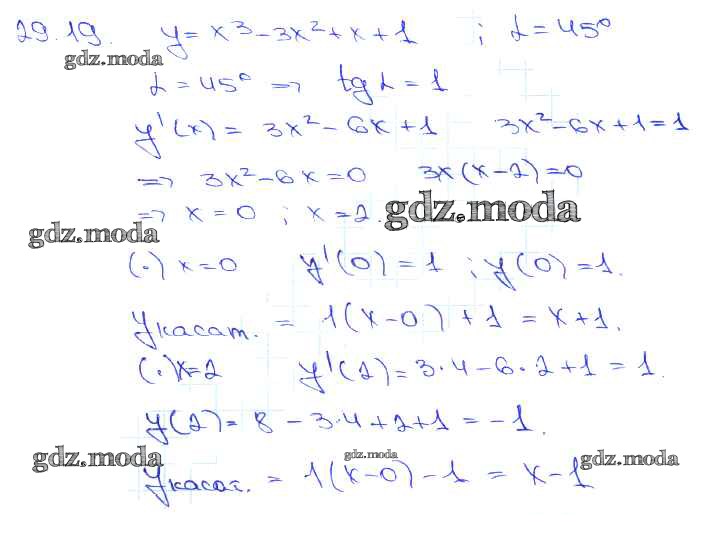 29.19. y = x³ - 3x² + x + 1 ; α = 45°
gdz.moda
α = 45° => tg α = 1
y'(x) = 3x² - 6x + 1 3x² - 6x + 1 = 1
=> 3x² - 6x = 0 3x(x - 2) = 0
=> x = 0 ; x = 2. gdz.moda
gdz.moda
(·) x = 0 y'(0) = 1 ; y(0) = 1.
yкасат. = 1(x - 0) + 1 = x + 1.
(·) x = 2 y'(2) = 3·4 - 6·2 + 1 = 1.
y(2) = 8 - 3·4 + 2 + 1 = -1.
gdz.moda gdz.moda gdz.moda
yкасат. = 1(x - 0) - 1 = x - 1